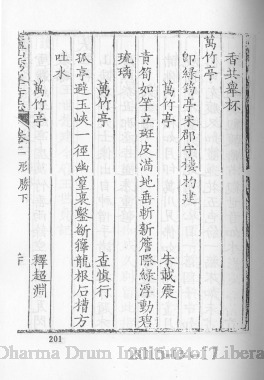 香共舉杯
萬竹亭
卽綠筠亭宋郡守樓杓建
萬竹亭 朱載震
青筍如竿立斑皮滿地垂斬新簷際綠浮動碧
琉璃
萬竹亭 查慎行
孤亭避玉峽一徑幽篁裏鑿斷籜龍根石槽方
吐水
萬竹亭 釋超淵
卷二 形勝下
201
Dharma Drum In
2015-04-17
Libera